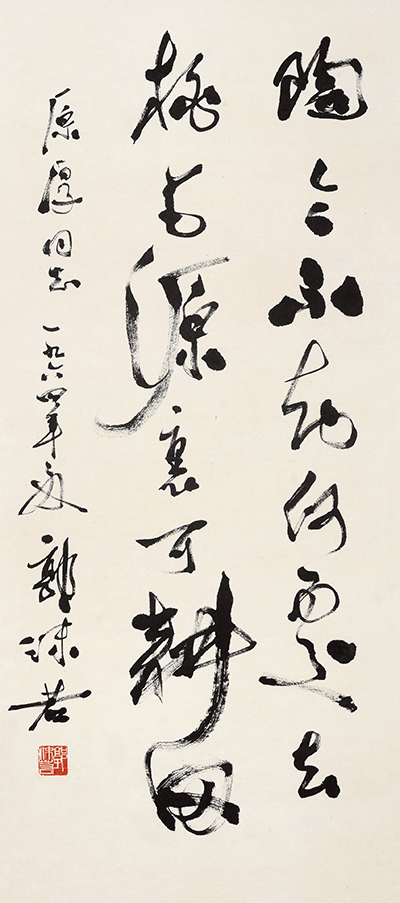 陶令不知何處去
桃花源裏可耕田
原厚同志 一九六四年夏 郭沫若